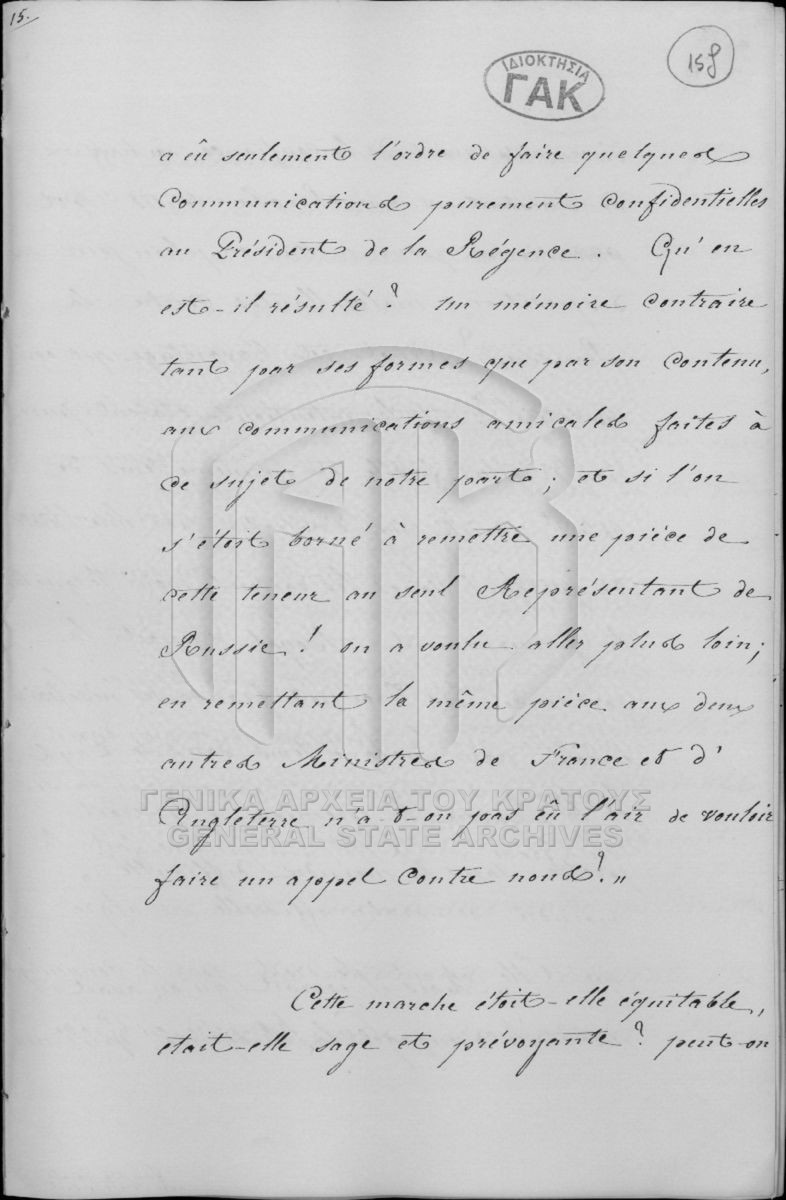 15.
159
ΙΔΙΟΚΤΗΣΙΑ
ΓΑΚ
a eû seulement l'ordre de faire quelques
Communications purement confidentielles
au Président de la Régence. Qu'en
est-il résulté? un mémoire contraire
tant par ses formes que par son contenu,
aux communications amicales faites à
ce sujet de notre part; et si l'on
s'étoit borné à remettre une pièce de
cette teneur au seul Représentant de
Russie! on a voulu aller plus loin;
en remettant la même pièce aux deux
autres Ministres de France et d'
Angleterre n'a-t-on pas eû l'air de vouloir
faire un appel contre nous?„
Cette marche étoit-elle équitable,
etait-elle sage et prévoyante? peut-on
ΓΕΝΙΚΑ ΑΡΧΕΙΑ ΤΟΥ ΚΡΑΤΟΥΣ
GENERAL STATE ARCHIVES